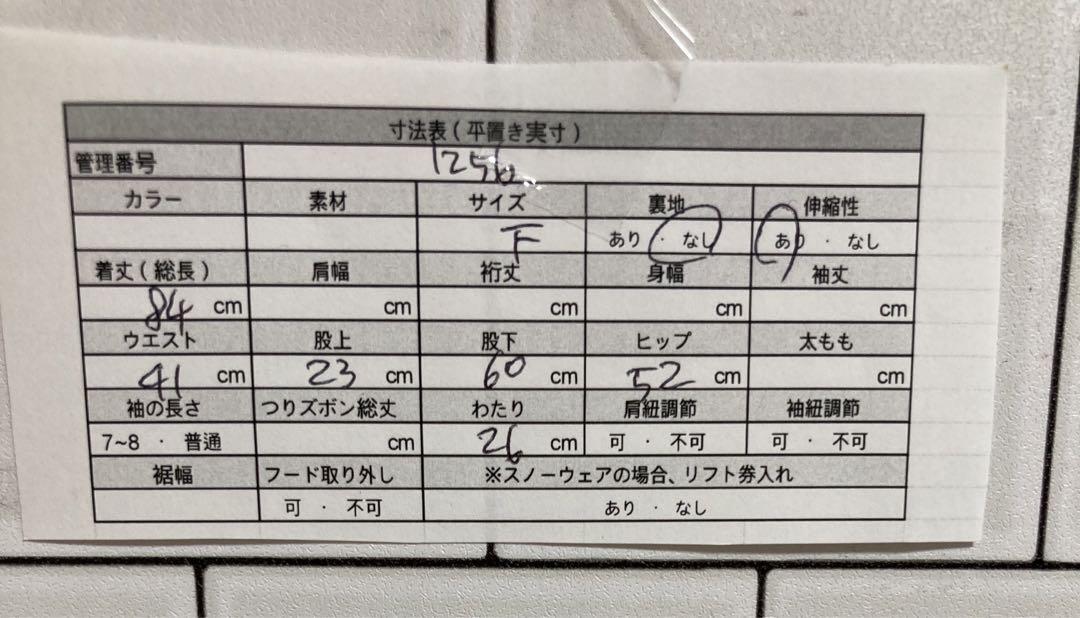 寸法表(平置き実寸)
管理番号 1256
カラー 素材 サイズ 裏地 伸縮性
F あり · なし あり · なし
着丈(総長) 肩幅 裄丈 身幅 袖丈
84 cm cm cm cm cm
ウエスト 股上 股下 ヒップ 太もも
41 cm 23 cm 60 cm 52 cm cm
袖の長さ つりズボン総丈 わたり 肩紐調節 袖紐調節
7~8 · 普通 cm 26 cm 可 · 不可 可 · 不可
裾幅 フード取り外し ※スノーウェアの場合、リフト券入れ
可 · 不可 あり · なし